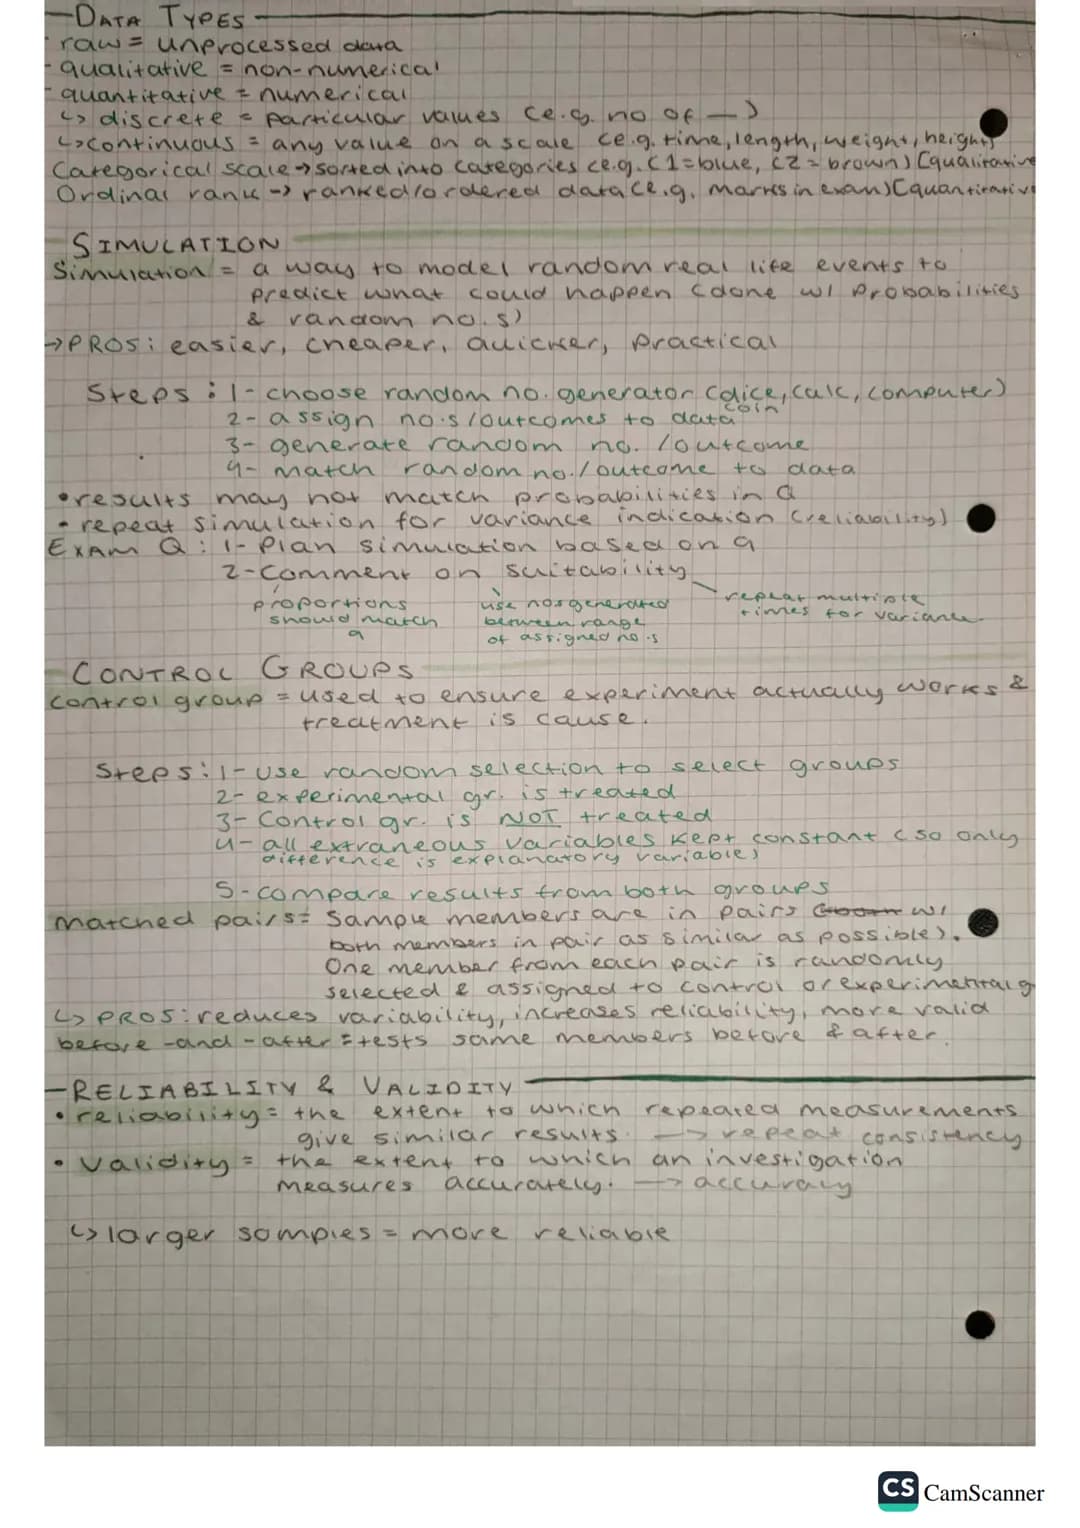 -DATA TYPES
-raw = unprocessed data
-qualitative = non-numerical
-quantitative = numerical
↳ discrete = particular values (e.g. no of —)
↳ continuous = any value on a scale (e.g. time, length, weight, height)
Categorical scale → sorted into categories (e.g. C1=blue, C2=brown) [qualitative
Ordinal rank → ranked/ordered data (e.g. marks in exam) [quantitative
SIMULATION
Simulation = a way to model random real life events to
predict what could happen (done w/ probabilities
& random no.s)
→PROS: easier, cheaper, quicker, practical
Steps: 1- choose random no. generator (dice, calc, computer)
coin
2- assign no.s/outcomes to data
3- generate random no./outcome
4- match random no./outcome to data
•results may not match probabilities in Q
•repeat simulation for variance indication (reliability)
EXAM Q: 1- Plan simulation based on q
2-Comment on suitability
proportions should match q
use nos generated between range of assigned no.s
repeat multiple times for variance
CONTROL GROUPS
control group = used to ensure experiment actually works &
treatment is cause.
Steps: 1- use random selection to select groups
2- experimental gr. is treated
3- Control gr. is NOT treated
4- all extraneous variables kept constant (so only
difference is explanatory variable)
5- compare results from both groups
matched pairs = sample members are in pairs w/
both members in pair as similar as possible).
One member from each pair is randomly
selected & assigned to control or experimental g
↳ PROS: reduces variability, increases reliability, more valid
before-and-after = tests same members before & after.
-RELIABILITY & VALIDITY
•reliability = the extent to which repeated measurements
give similar results. → repeat consistency
•validity = the extent to which an investigation
measures accurately. → accuracy
↳ larger samples = more reliable
CS CamScanner